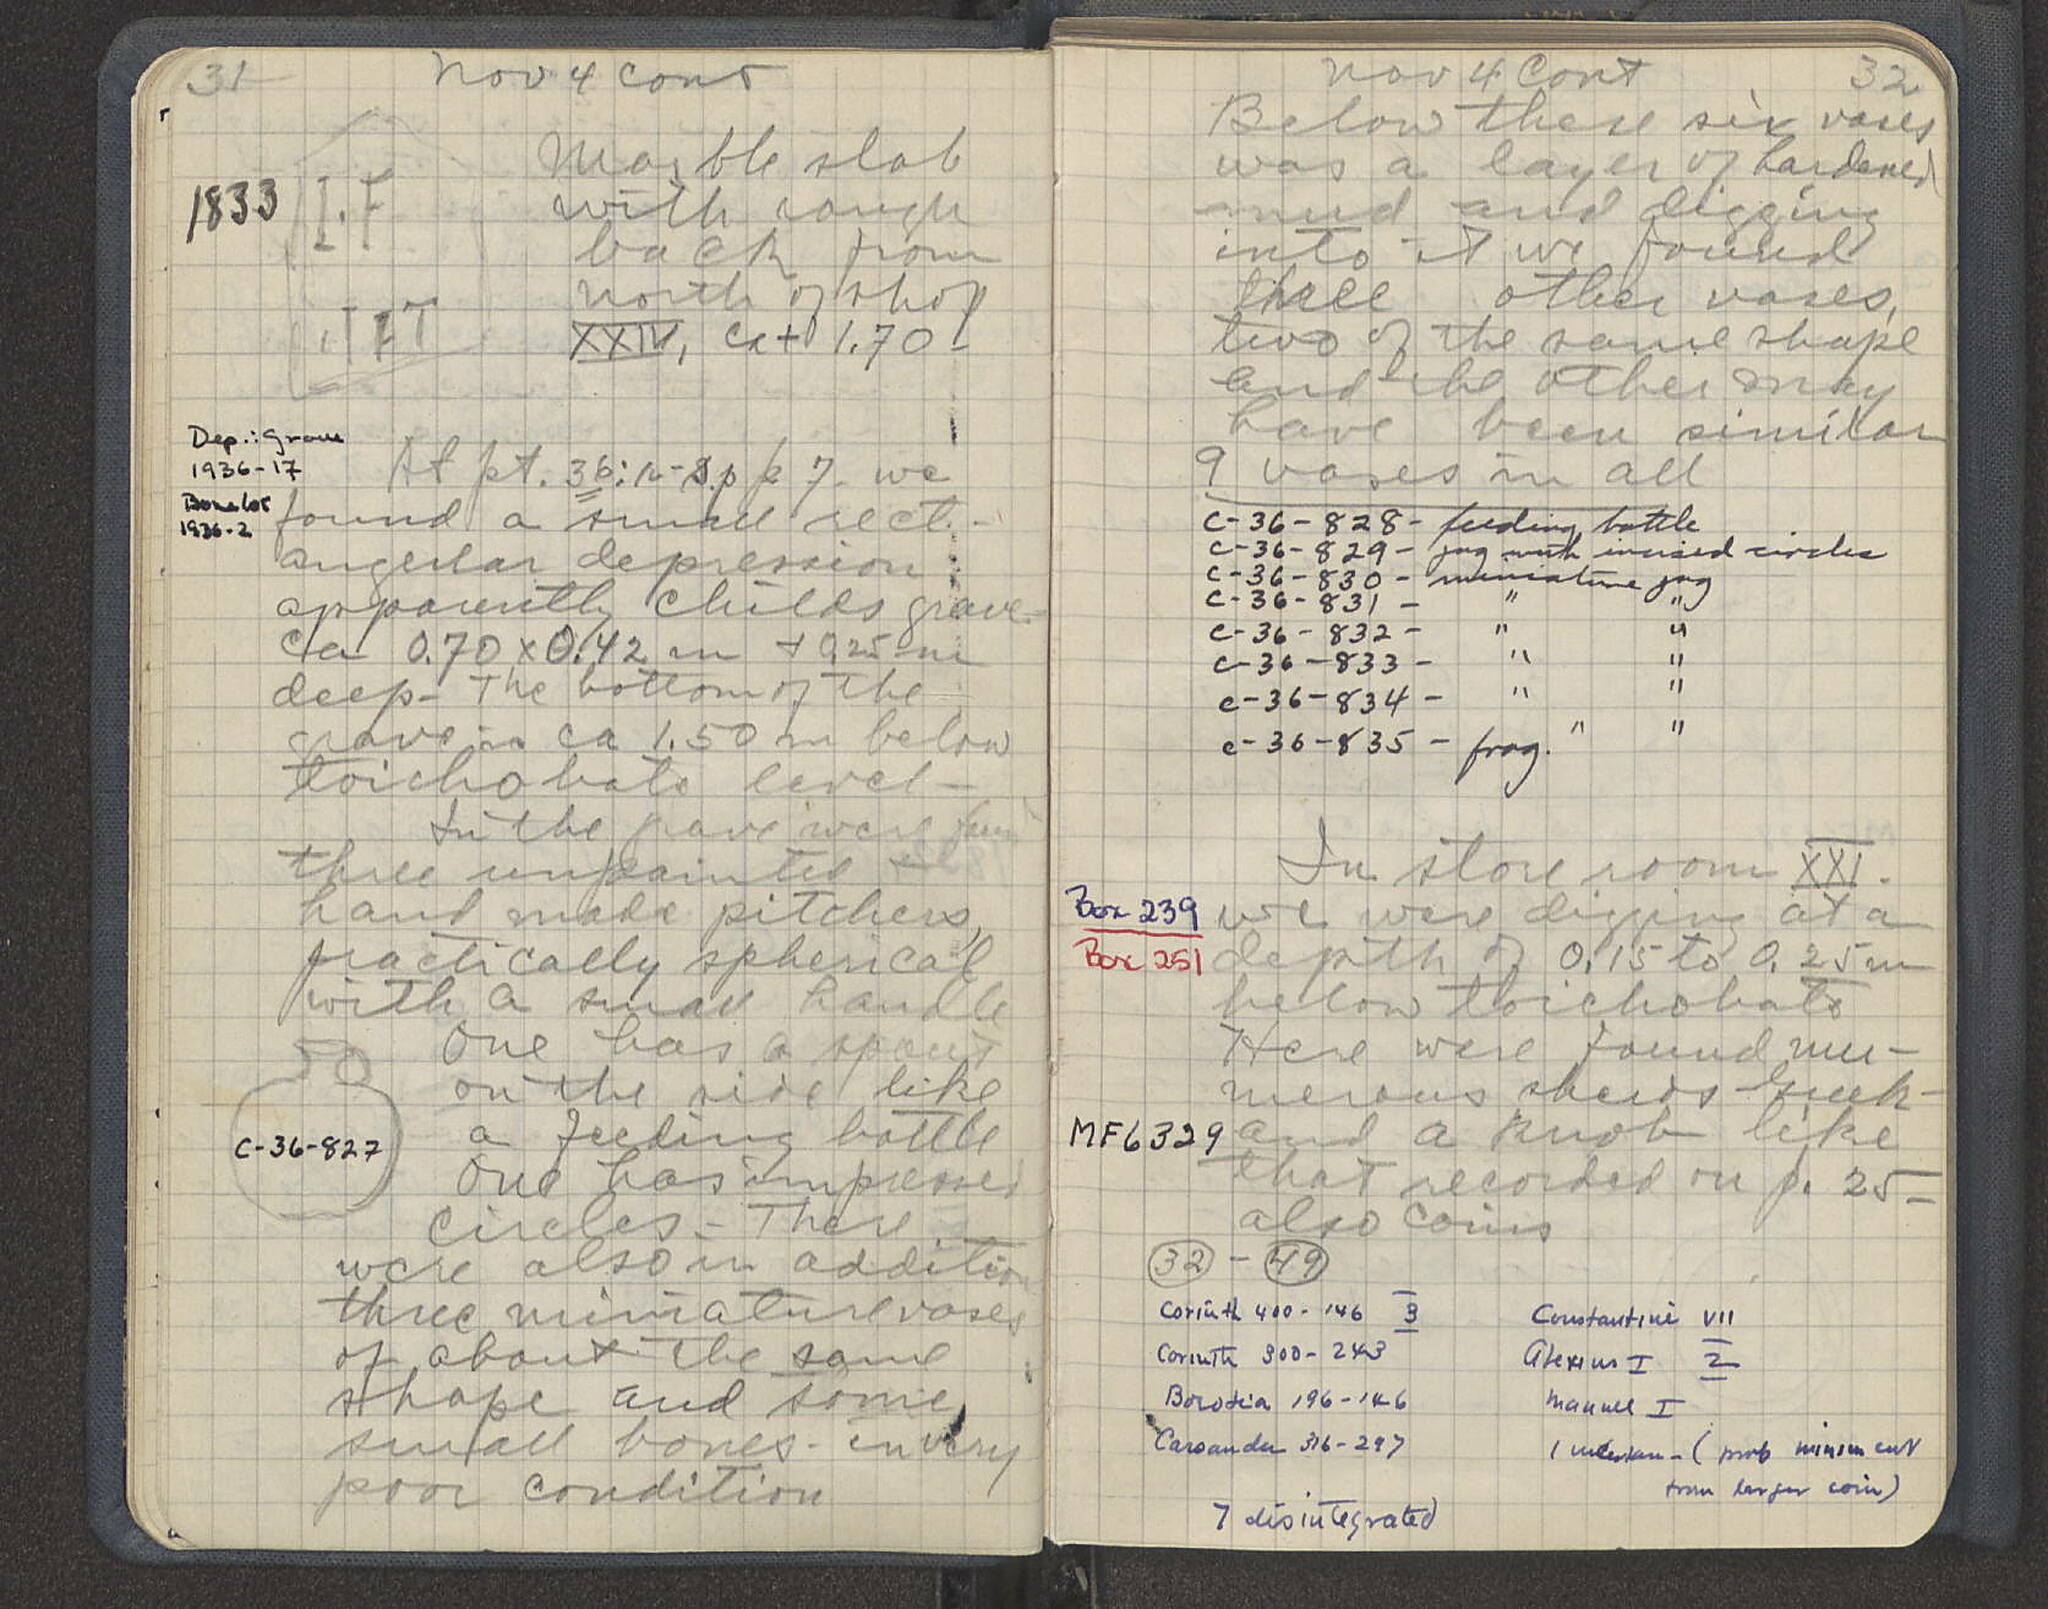 31
Nov 4 cont
1833
Marble slab
with rough
back from
north of shop
XXIV, Ca + 1.70 -
Dep.: Grave
1936-17
Bone lot
1936-2
At pt. 36: p 7. we
found a small rect-
angular depression
apparently childs grave-
Ca 0.70 x 0.42 m + 0.25 m
deep- The bottom of the
grave is ca 1.50 m below
toichobate level -
In the grave were
three unpainted
hand made pitchers,
practically spherical
with a small handle
One has a spout
on the side like
a feeding bottle
One has impressed
circles - There
were also in addition
three miniature vases
of about the same
shape and some
small bones - in very
poor condition
C-36-827
Nov 4 Cont
32
Below these six vases
was a layer of hardened
mud and digging
into it we found
three other vases,
two of the same shape
and the other may
have been similar
9 vases in all
C-36-828- feeding bottle
C-36-829- jug with incised circles
C-36-830- miniature jug
C-36-831 - " "
C-36-832 - " "
C-36-833 - " "
C-36-834 - " "
C-36-835 - frag. " "
In store room XXI.
Box 239
Box 251
we were digging at a
depth of 0.15 to 0.25 m
below toichobate
Here were found nu-
merous sherds Greek-
MF6329
and a knob like
that recorded on p. 25 -
also coins
32 - 49
Corinth 400-146 3
Corinth 300-243
Boeotia 196-146
Cassander 316-297
7 disintegrated
Constantine VII
Alexius I 2
Manuel I
1 uncertain - (prob minim cut
from larger coin)